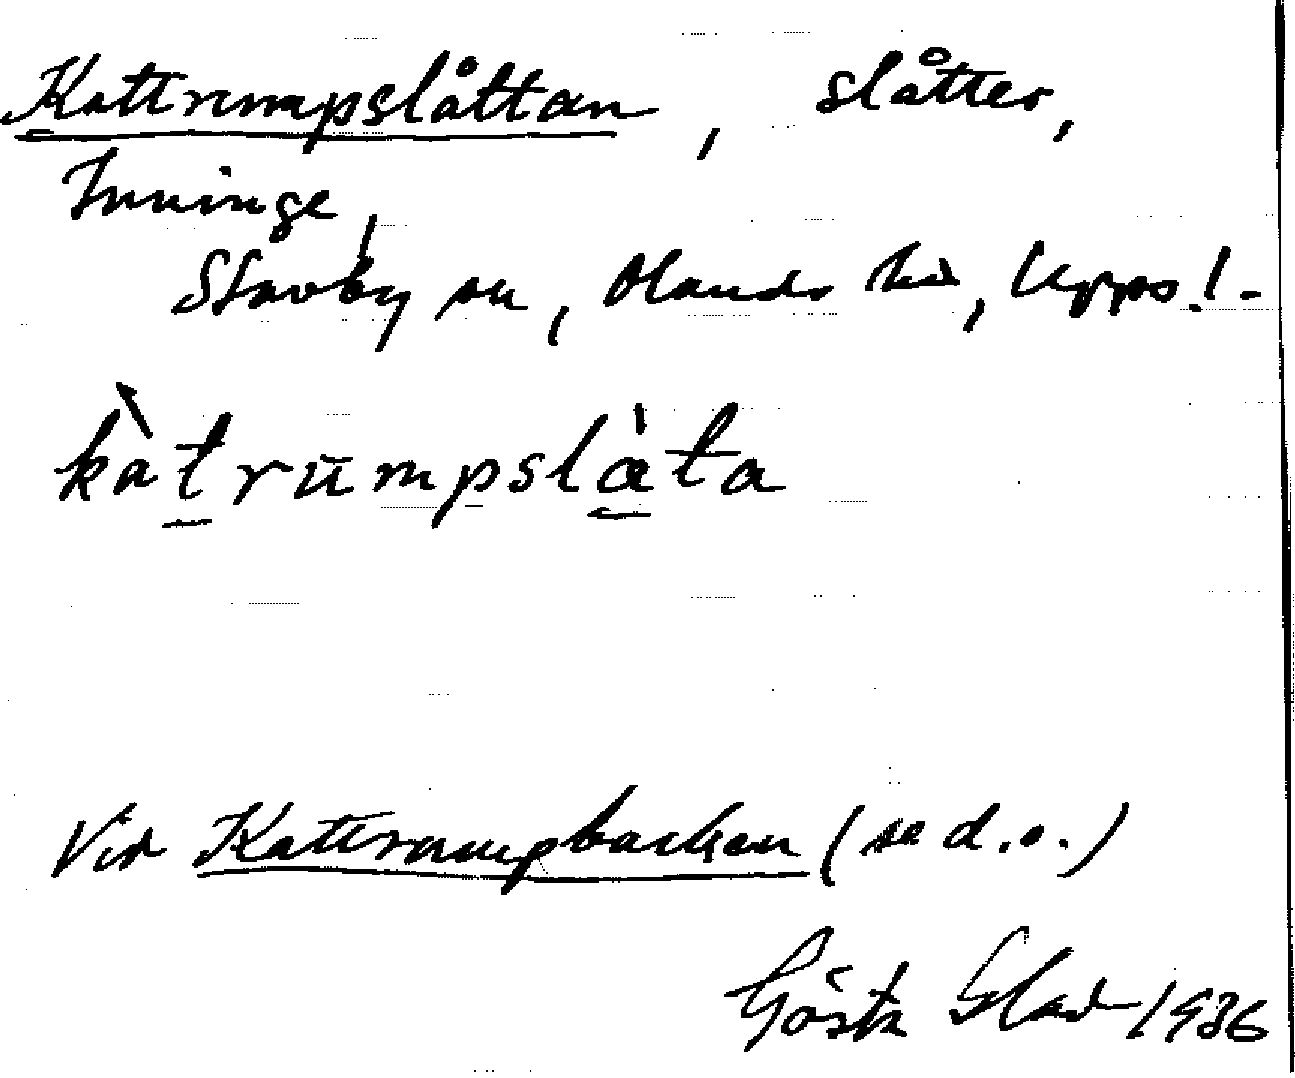 Kattrumpslåttan, slåtter,
Inninge,
Stavby sn, Olands hd, Upps. l.-
kàtrūmpslàta
Vid Kattrumpbacken (se d.o.)
Gösta Blad 1936